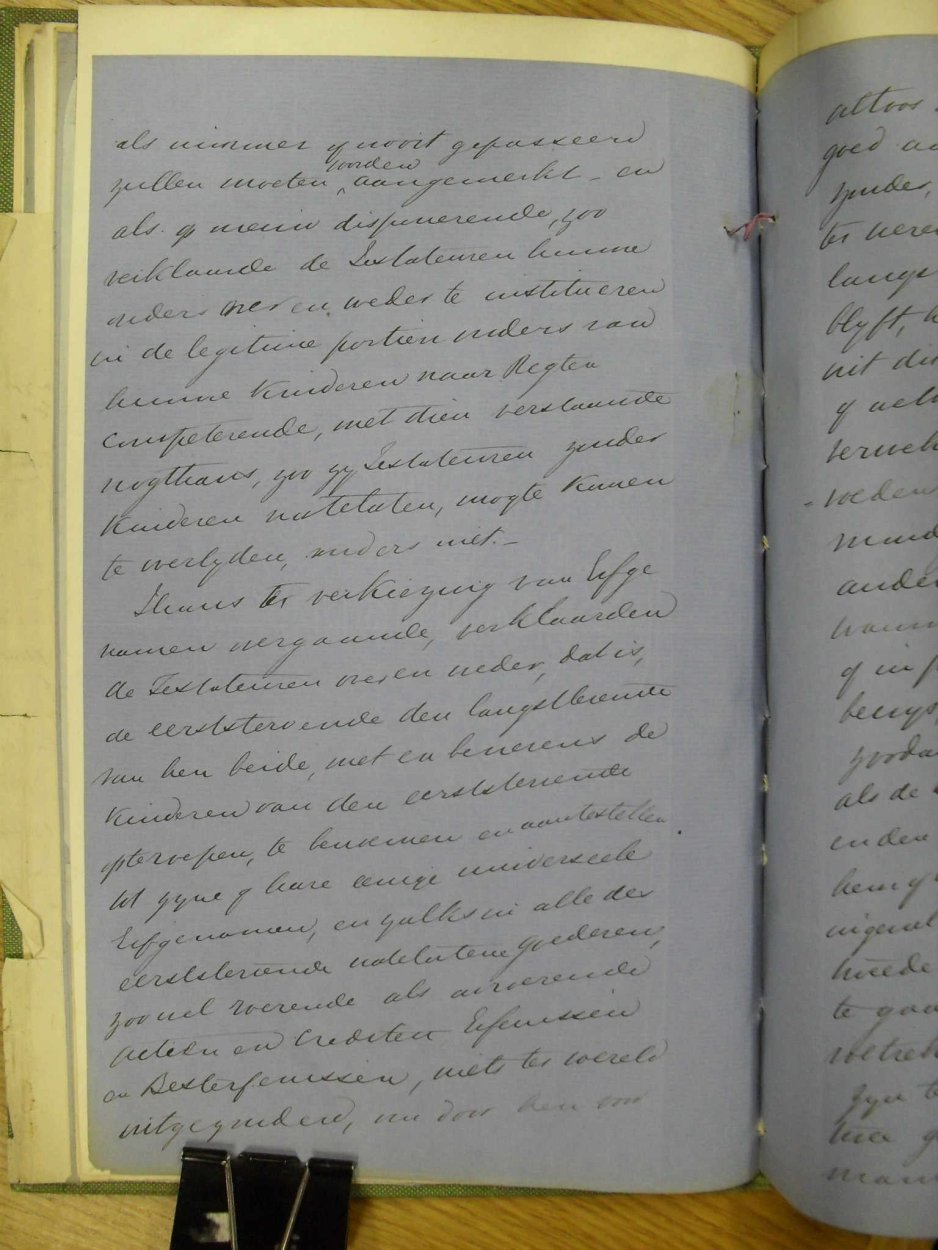 als nimmer of nooit gepasseerd
zullen moeten worden aangemerkt – en
als op nieuw disponerende, zoo
verklaarde de Testateuren hunne
ouders over en weder te institueren
in de legitime portien ouders van
hunne Kinderen naar Regten
competerende, met dien verstaande
nogthans, zoo zy Testateuren zonder
Kinderen natelaten, mogte Komen
te overlyden, anders niet. –
Thans ter verkiezing van Erfge
namen overgaande, verklaarden
de Testateuren over en weder, dat is,
de eerststervende den langstlevende
van hen beide, met en benevens de
Kinderen van den eerststervende
opteroepen, te benoemen en aantestellen
tot zyne of hare eenige universeele
Erfgenamen, en zulks in alle des
eerststervende natelatene goederen,
zoo wel roerende als onroerende
actien en Crediten Erfenissen
en Besterfenissen, niets ter wereld
uitgezonderd, om door hen voor
altoos
goed
zonder,
ter were
langs
blyft,
uit di
of
-weden
ander
of in
als de
en den
hem of
tweede
te gaa
Zyn